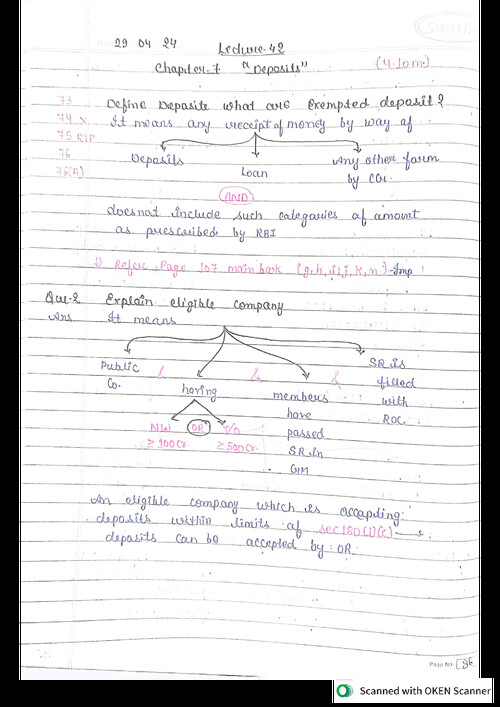 29 04 24 Lecture-42
Chapter-7 "Deposits" (4-10m)
73 Define Deposits what are Exempted deposit?
74 x It means any receipt of money by way of
75 RIP
76 Deposits Loan Any other form
76(A) by CG.
AND
does not include such categories of amount
as prescribed by RBI
1) Refer Page 107 main book (g,h,i,j,k,n)-Imp
Que-2 Explain eligible company
Ans. It means
Public & having & members & SR is
Co. have filled
passed with
SR in ROC
GM
NW OR T/O
≥100Cr ≥500Cr
An eligible company which is accepting
deposits within limits of sec 180(1)(c)
deposits can be accepted by OR.
Page No. 86
Scanned with OKEN Scanner